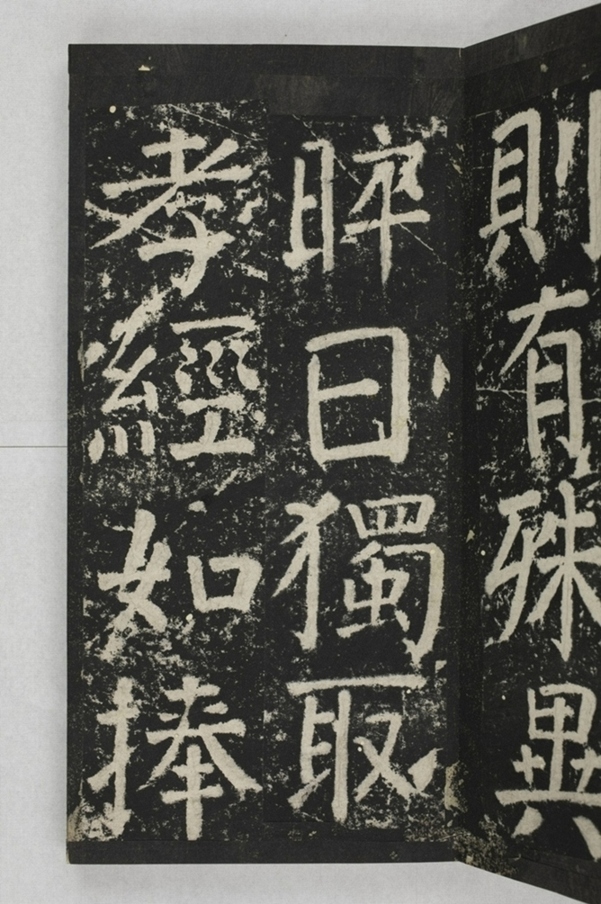 則有殊異
晬日獨取
孝經如捧